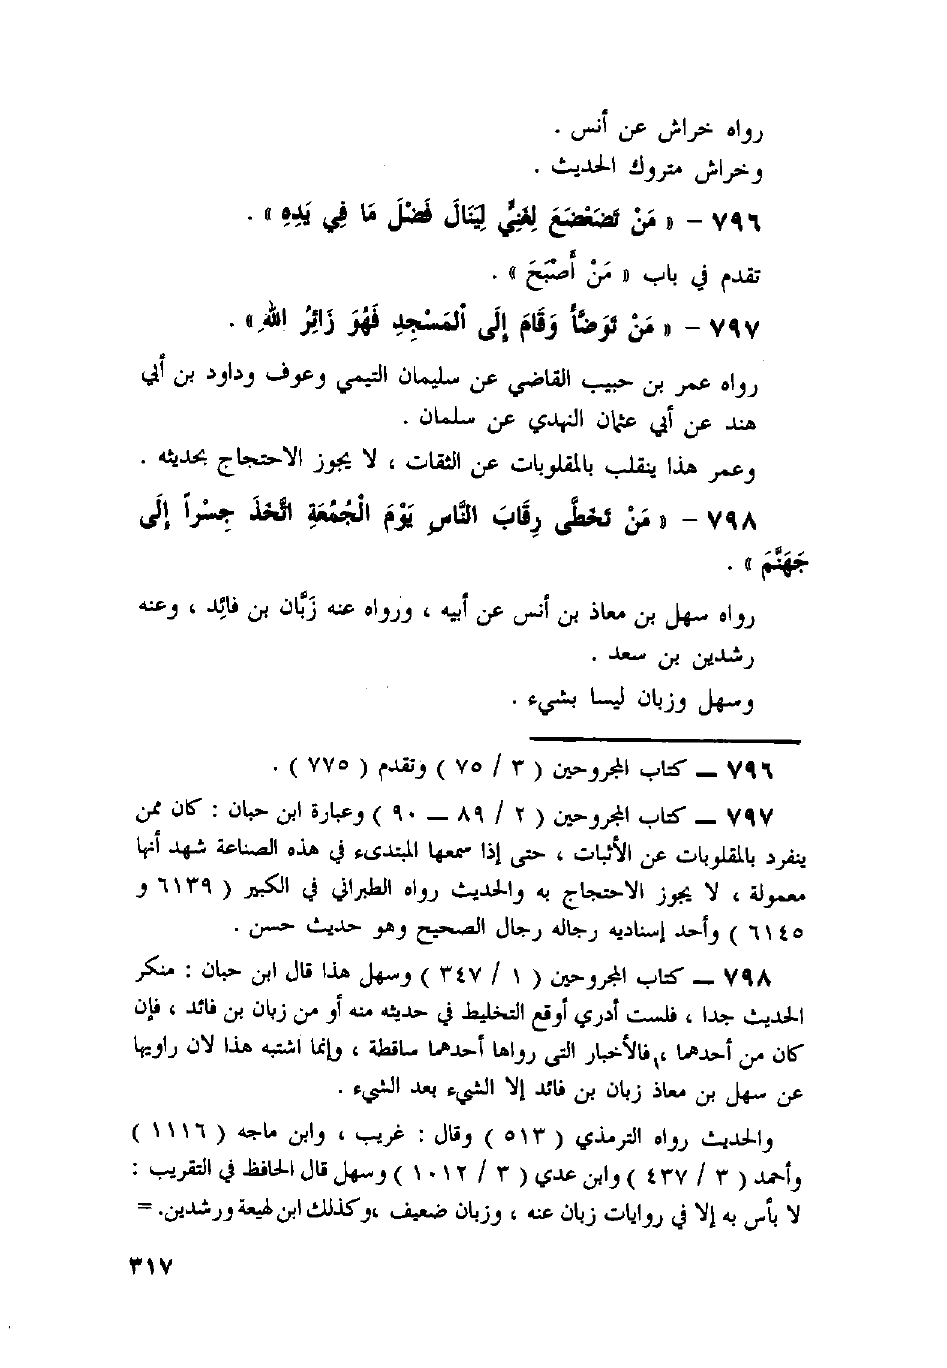 رواه خراش عن أنس .
وخراش متروك الحديث .
٧٩٦ – « مَنْ تَضَعْضَعَ لِغَنِيٍّ لِيَنَالَ فَضْلَ مَا فِي يَدِهِ » .
تقدم في باب « مَنْ أَصْبَحَ » .
٧٩٧ – « مَنْ تَوَضَّأَ وَقَامَ إِلَى ٱلمَسْجِدِ فَهُوَ زَائِرُ اللهِ » .
رواه عمر بن حبيب القاضي عن سليمان التيمي وعوف وداود بن أبي
هند عن أبي عثمان النهدي عن سلمان .
وعمر هذا ينقلب بالمقلوبات عن الثقات ، لا يجوز الاحتجاج بحديثه .
٧٩٨ – « مَنْ تَخَطَّى رِقَابَ النَّاسِ يَوْمَ الْجُمُعَةِ اتَّخَذَ جِسْراً إِلَى
جَهَنَّمَ » .
رواه سهل بن معاذ بن أنس عن أبيه ، ورواه عنه زَبَّان بن فائِد ، وعنه
رشدين بن سعد .
وسهل وزبان ليسا بشيء .
٧٩٦ ــ كتاب المجروحين ( ٣ / ٧٥ ) وتقدم ( ٧٧٥ ) .
٧٩٧ ــ كتاب المجروحين ( ٢ / ٨٩ ــ ٩٠ ) وعبارة ابن حبان : كان ممن
ينفرد بالمقلوبات عن الأثبات ، حتى إذا سمعها المبتدىء في هذه الصناعة شهد أنها
معمولة ، لا يجوز الاحتجاج به والحديث رواه الطبراني في الكبير ( ٦١٣٩ و
٦١٤٥ ) وأحد إسناديه رجاله رجال الصحيح وهو حديث حسن .
٧٩٨ ــ كتاب المجروحين ( ١ / ٣٤٧ ) وسهل هذا قال ابن حبان : منكر
الحديث جدا ، فلست أدري أوقع التخليط في حديثه منه أو من زبان بن فائد ، فإن
كان من أحدهما ، فالأخبار التى رواها أحدهما ساقطة ، وإنما اشتبه هذا لان راويها
عن سهل بن معاذ زبان بن فائد إلا الشيء بعد الشيء .
والحديث رواه الترمذي ( ٥١٣ ) وقال : غريب ، وابن ماجه ( ١١١٦ )
وأحمد ( ٣ / ٤٣٧ ) وابن عدي ( ٣ / ١٠١٢ ) وسهل قال الحافظ في التقريب :
لا بأس به إلا في روايات زبان عنه ، وزبان ضعيف ،وكذلك ابن لهيعة ورشدين. =
٣١٧